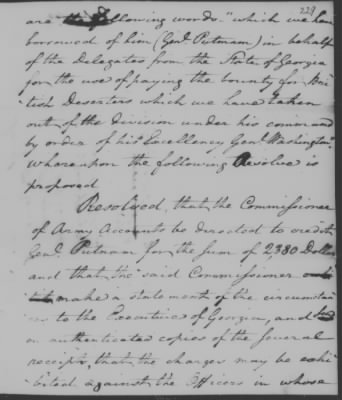 229
are the following words "which we have
borrowed of him (Genl. Putnam) in behalf
of the Delegates from the State of Georgia
for the use of paying the bounty for Bri
tish Deserters which we have taken
out of the division under his command
by order of his Excellency Genl. Washington"
Whereupon the following Resolve is
proposed
Resolved, that the Commissioner
of Army Accounts be directed to credit
Genl. Putnam for the sum of 2380 Dollars
and that the said Commissioner
make a statement of the circumstan
ces to the Executive of Georgia, and
on authenticated copies of the several
receipts, that the charges may be exhi
bited against the Officers in whose